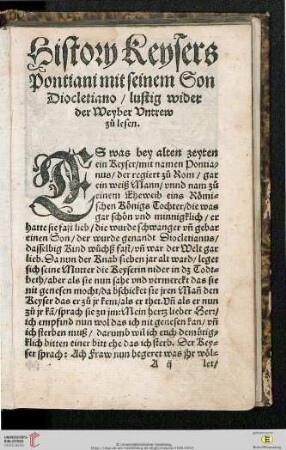 History Keysers
Pontiani mit seinem Son
Diocletiano / lustig wider
der Weyber Vntrew
zů lesen.
ES was bey alten zeyten
ein Keyser / mit namen Pontia-
nus / der regiert zů Rom / gar
ein weiß Mann / vnnd nam zů
einem Eheweib eins Römi-
schen Königs Tochter / die was
gar schön vnd minnigklich / er
hatte sie fast lieb / die wurde schwanger vñ gebar
einen Son / der wurde genandt Diocletianus /
dasselbig Kind wůchß fast / vñ war der Welt gar
lieb. Da nun der Knab sieben jar alt ward / leget
sich seine Mutter die Keyserin nider in dz Todt-
beth / aber als sie nun sahe vnd vermerckt das sie
nit genesen mocht / da bschicket sie jren Mañ den
Keyser das er zů jr kem / als er thet. Vñ als er nun
zů jr kã / sprach sie zů jm: Mein hertz lieber Herr /
ich empfind nun wol das ich nit genesen kan / vñ
ich sterben můß / darumb wil ich euch demůtig-
klich bitten einer bitt ehe das ich sterb. Der Key-
ser sprach: Ach Fraw nun begeret was jhr wöl-
A ij let /